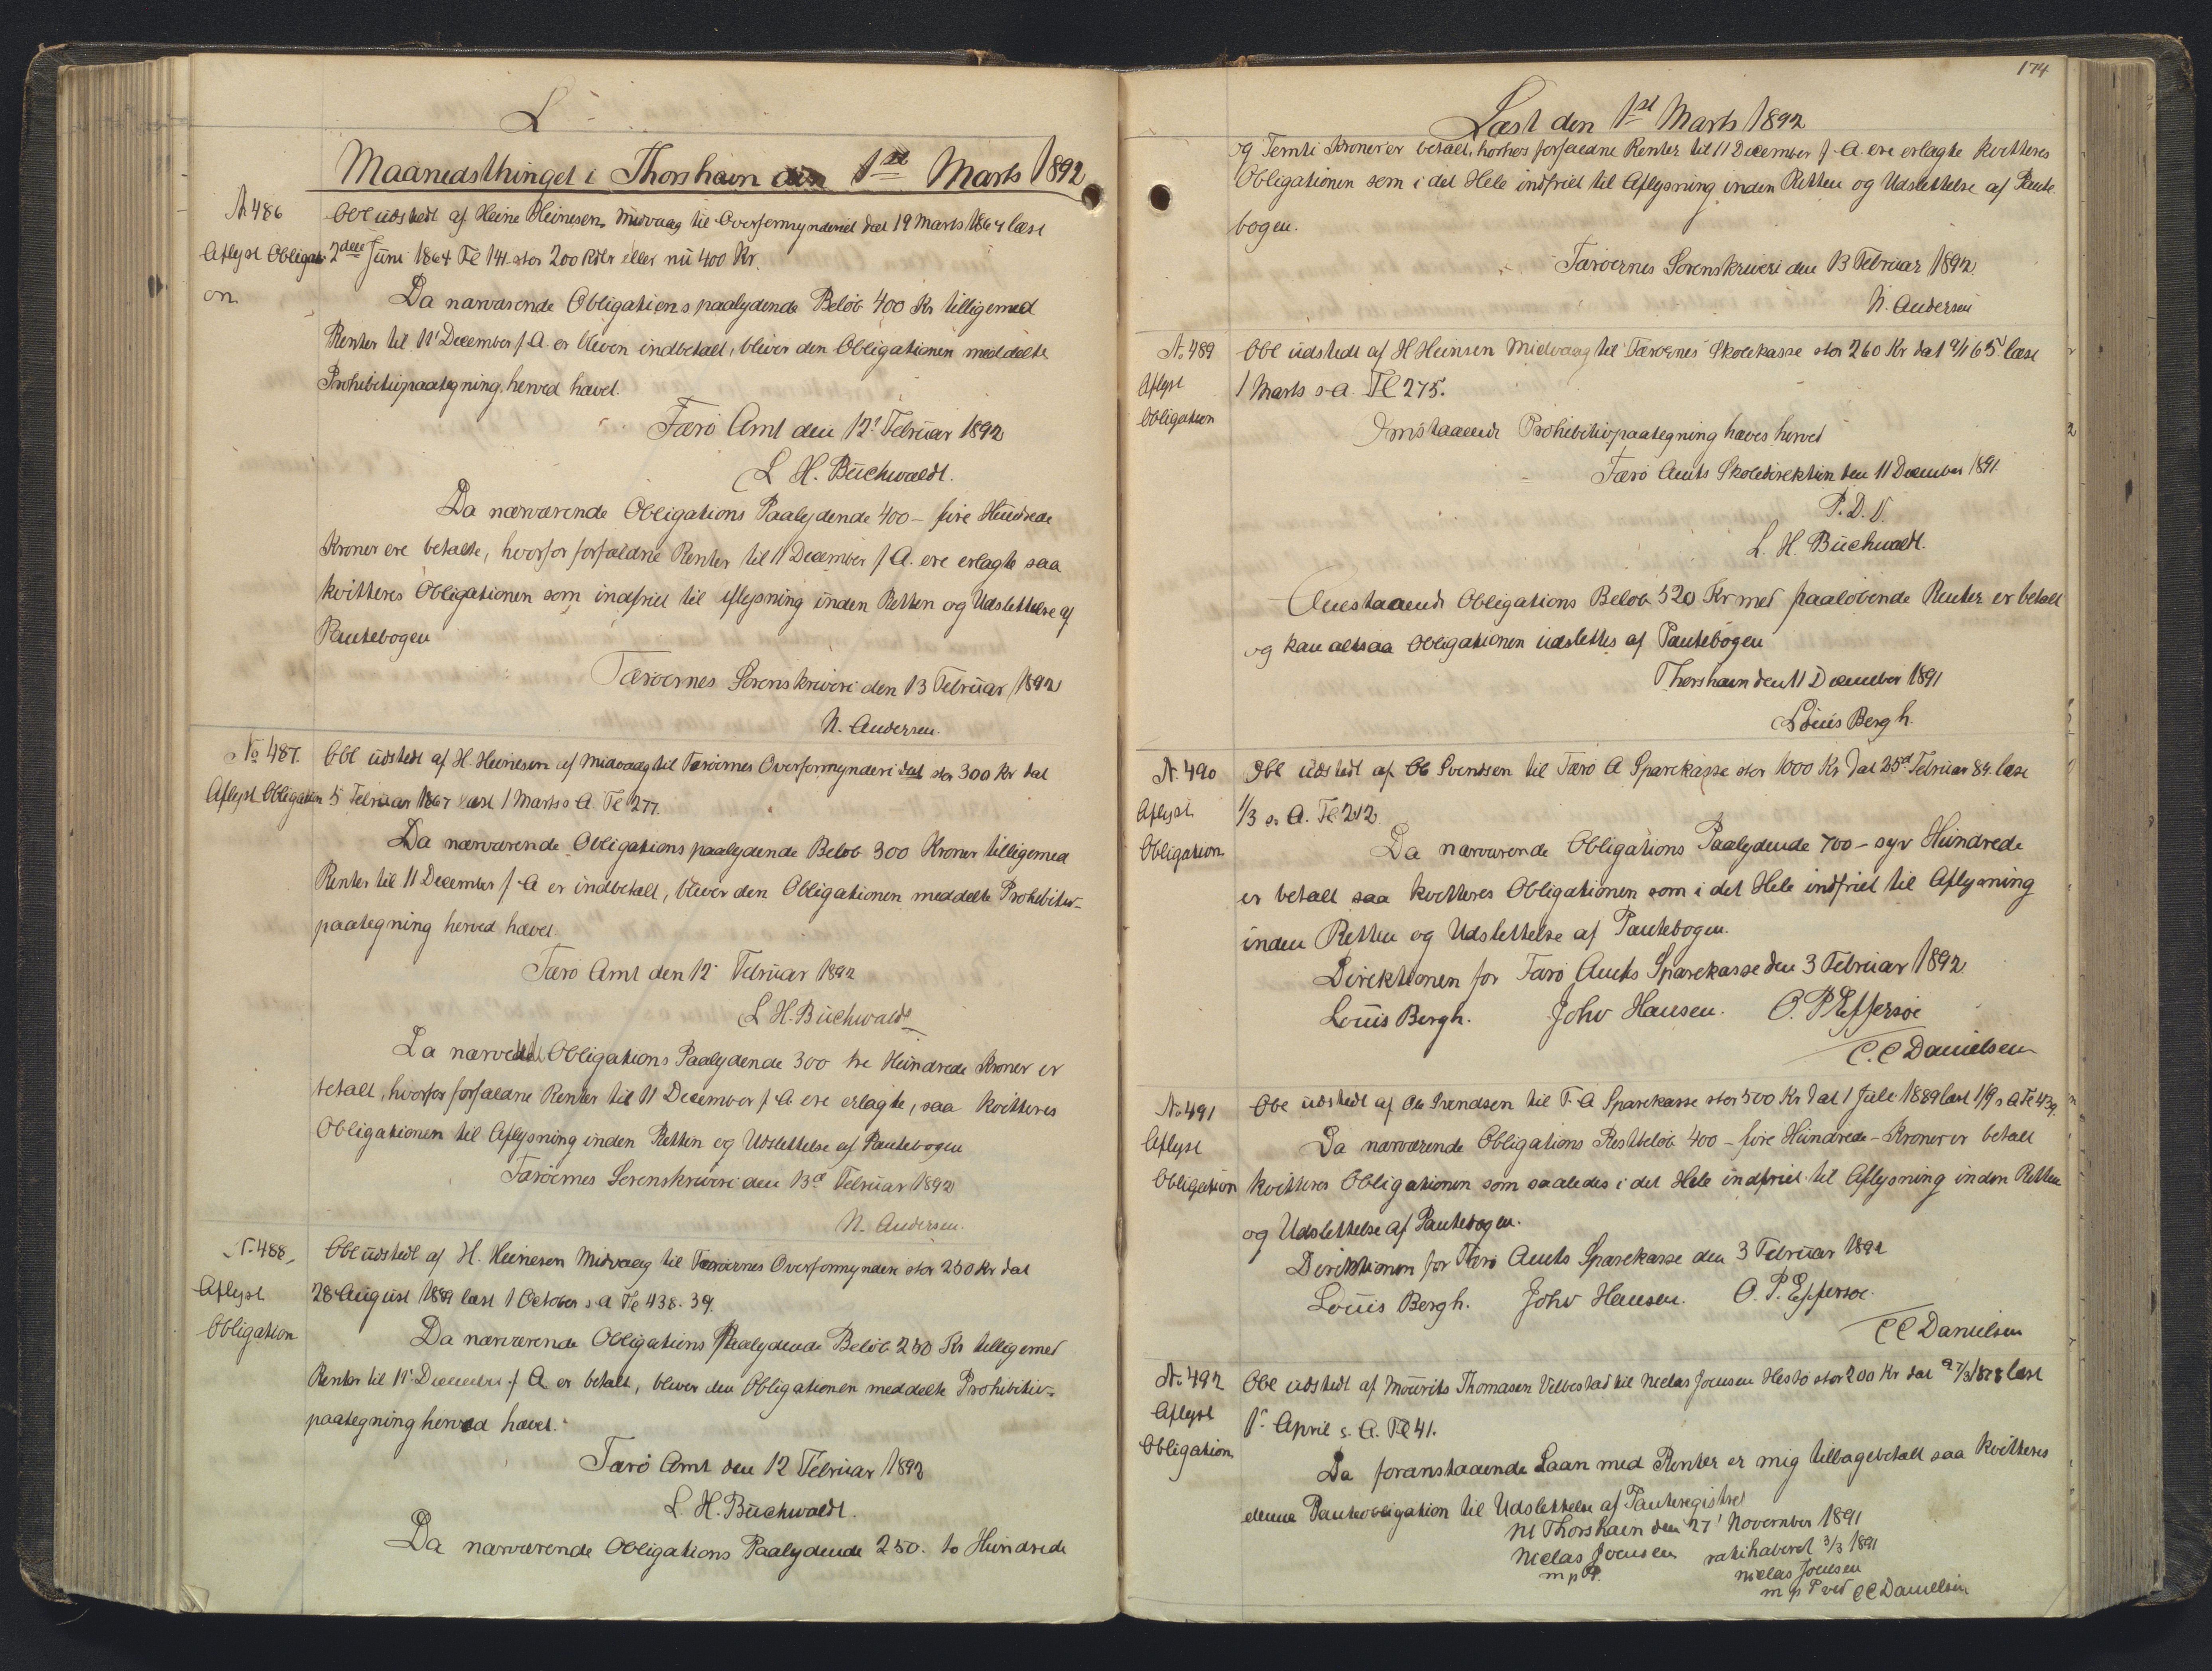 L
Maanedsthinget i Thorshavn den 1ste Marts 1892
No 486
Aflyst Obligati
on
Obl udstedt af Heine Heinesen, Midvaag til Overformynderiet dat 19 Marts 1864 læst
2den Juni 1864 Fol 141 stor 200 Rdlr eller nu 400 Kr.
Da nærværende Obligations paalydende Beløb 400 Kr tilligemed
Renter til 11' December f. A. er bleven indbetalt, bliver den Obligationen meddelte
Prohibitivpaategning herved hævet.
Færø Amt den 12' Februar 1892
L H. Buchwaldt.
Da nærværende Obligations Paalydende 400 - fire Hundrede
Kroner ere betalte, hvorfor forfaldne Renter til 11 December f A. ere erlagte saa
kvitteres Obligationen som indfriet til Aflysning inden Retten og Udslettelse af
Pantebogen
Færøernes Sorenskriveri den 13 Februar 1892
N. Andersen.
No 487
Aflyst Obligation
Obl udstedt af H. Heinesen af Midvaag til Færøernes Overformynderi stor 300 Kr dat
5 Februar 1867 læst 1 Marts s A. Fol 277.
Da nærværende Obligations paalydende Beløb 300 Kroner tilligemed
Renter til 11 December f A er indbetalt, bliver den Obligationen meddelte Prohibitiv-
paategning herved hævet.
Færø Amt den 12 Februar 1892
L H. Buchwaldt
Da nærværende Obligations Paalydende 300 tre Hundrede Kroner er
betalt, hvorfor forfaldne Renter til 11 December f A. ere erlagte, saa kvitteres
Obligationen til Aflysning inden Retten og Udslettelse af Pantebogen
Færøernes Sorenskriveri den 13d Februar 1892
N. Andersen.
No 488,
Aflyst
Obligation
Obl udstedt af H. Heinesen Midvaag til Færøernes Overformynderi stor 250 Kr dat
28 August 1889 læst 1 October s. A Fol 438. 39.
Da nærværende Obligations Paalydende Beløb 250 Kr tilligemed
Renter til 11' December f A er betalt, bliver den Obligationen meddelte Prohibitiv-
paategning herved hævet.
Færø Amt den 12 Februar 1892
L. H. Buchwaldt.
Da nærværende Obligations Paalydende 250. to Hundrede
174
Læst den 1ste Marts 1892
og Femti Kroner er betalt, hvorhos forfaldne Renter til 11 December f. A. ere erlagte kvitteres
Obligationen som i det Hele indfriet til Aflysning inden Retten og Udslettelse af Pante
bogen.
Færøernes Sorenskriveri den 13 Februar 1892
N. Andersen
No 489
Aflyst
Obligation
Obl udstedt af H Heinsen Midvaag til Færøernes Skolekasse stor 260 Kr dat 9/1 65 læst
1 Marts s A Fol 275.
Omstaaende Prohibitivpaategning hæves herved
Færø Amts Skoledirektion den 11 December 1891.
P. D. V.
L. H. Buchwaldt.
Omstaaende Obligations Beløb 520 Kr med paaløbende Renter er betalt
og kan altsaa Obligationen udslettes af Pantebogen
Thorshavn den 11 December 1891
Louis Bergh.
No 490
Aflyst
Obligation
Obl udstedt af Ole Svendsen til Færø A Sparekasse stor 1000 Kr dat 25d Februar 84 læst
1/3 s. A. Fol 212.
Da nærværende Obligations Paalydende 700 - syv Hundrede
er betalt saa kvitteres Obligationen som i det Hele indfriet til Aflysning
inden Retten og Udslettelse af Pantebogen.
Direktionen for Færø Amts Sparekasse den 3 Februar 1892
Louis Bergh. Johs Hansen. O. P Effersøe
C. C Danielsen
No 491
Aflyst
Obligation
Obl udstedt af Ole Svendsen til F. A Sparekasse stor 500 Kr dat 1 Juli 1889 læst 1/9 s A Fol 439.
Da nærværende Obligations Restbeløb 400 - fire Hundrede - Kroner er betalt
kvitteres Obligationen som saaledes i det Hele indfriet til Aflysning inden Retten
og Udslettelse af Pantebogen.
Direktionen for Færø Amts Sparekasse den 3 Februar 1892
Louis Bergh. Johs Hansen. O. P. Effersøe.
C C Danielsen
No 492
Aflyst
Obligation
Obl udstedt af Mourits Thomasen Velbestad til Niclas Joensen Hestø stor 200 Kr dat 27/3 1878 læst
1' April s. A. Fol 41.
Da foranstaaende Laan med Renter er mig tilbagebetalt saa kvitteres
denne Panteobligation til Udslettelse af Panteregistret
pt Thorshavn den 27' November 1891
Niclas Joensen ratihaberet 3/3 1891
m p P. Niclas Joensen
m p P ved C C Danielsen